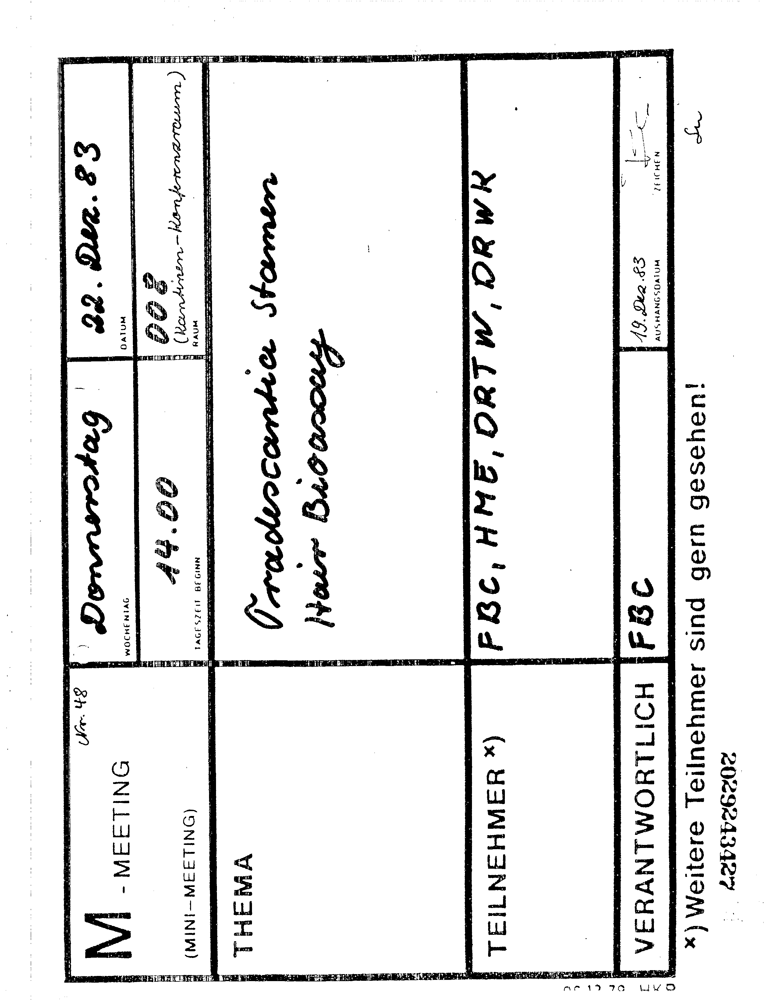 M - MEETING
Nr. 48
(MINI-MEETING)
Donnerstag
WOCHENTAG
22. Dez. 83
DATUM
14.00
TAGESZEIT BEGINN
008
(Kantinen-Konferenzraum)
RAUM
THEMA
Tradescantia Stamen
Hair Bioassay
TEILNEHMER x)
FBC, HME, DRTW, DRWR
VERANTWORTLICH
FBC
19. Dez. 83
AUSHANGSDATUM
ZEICHEN
x) Weitere Teilnehmer sind gern gesehen!
2029243427